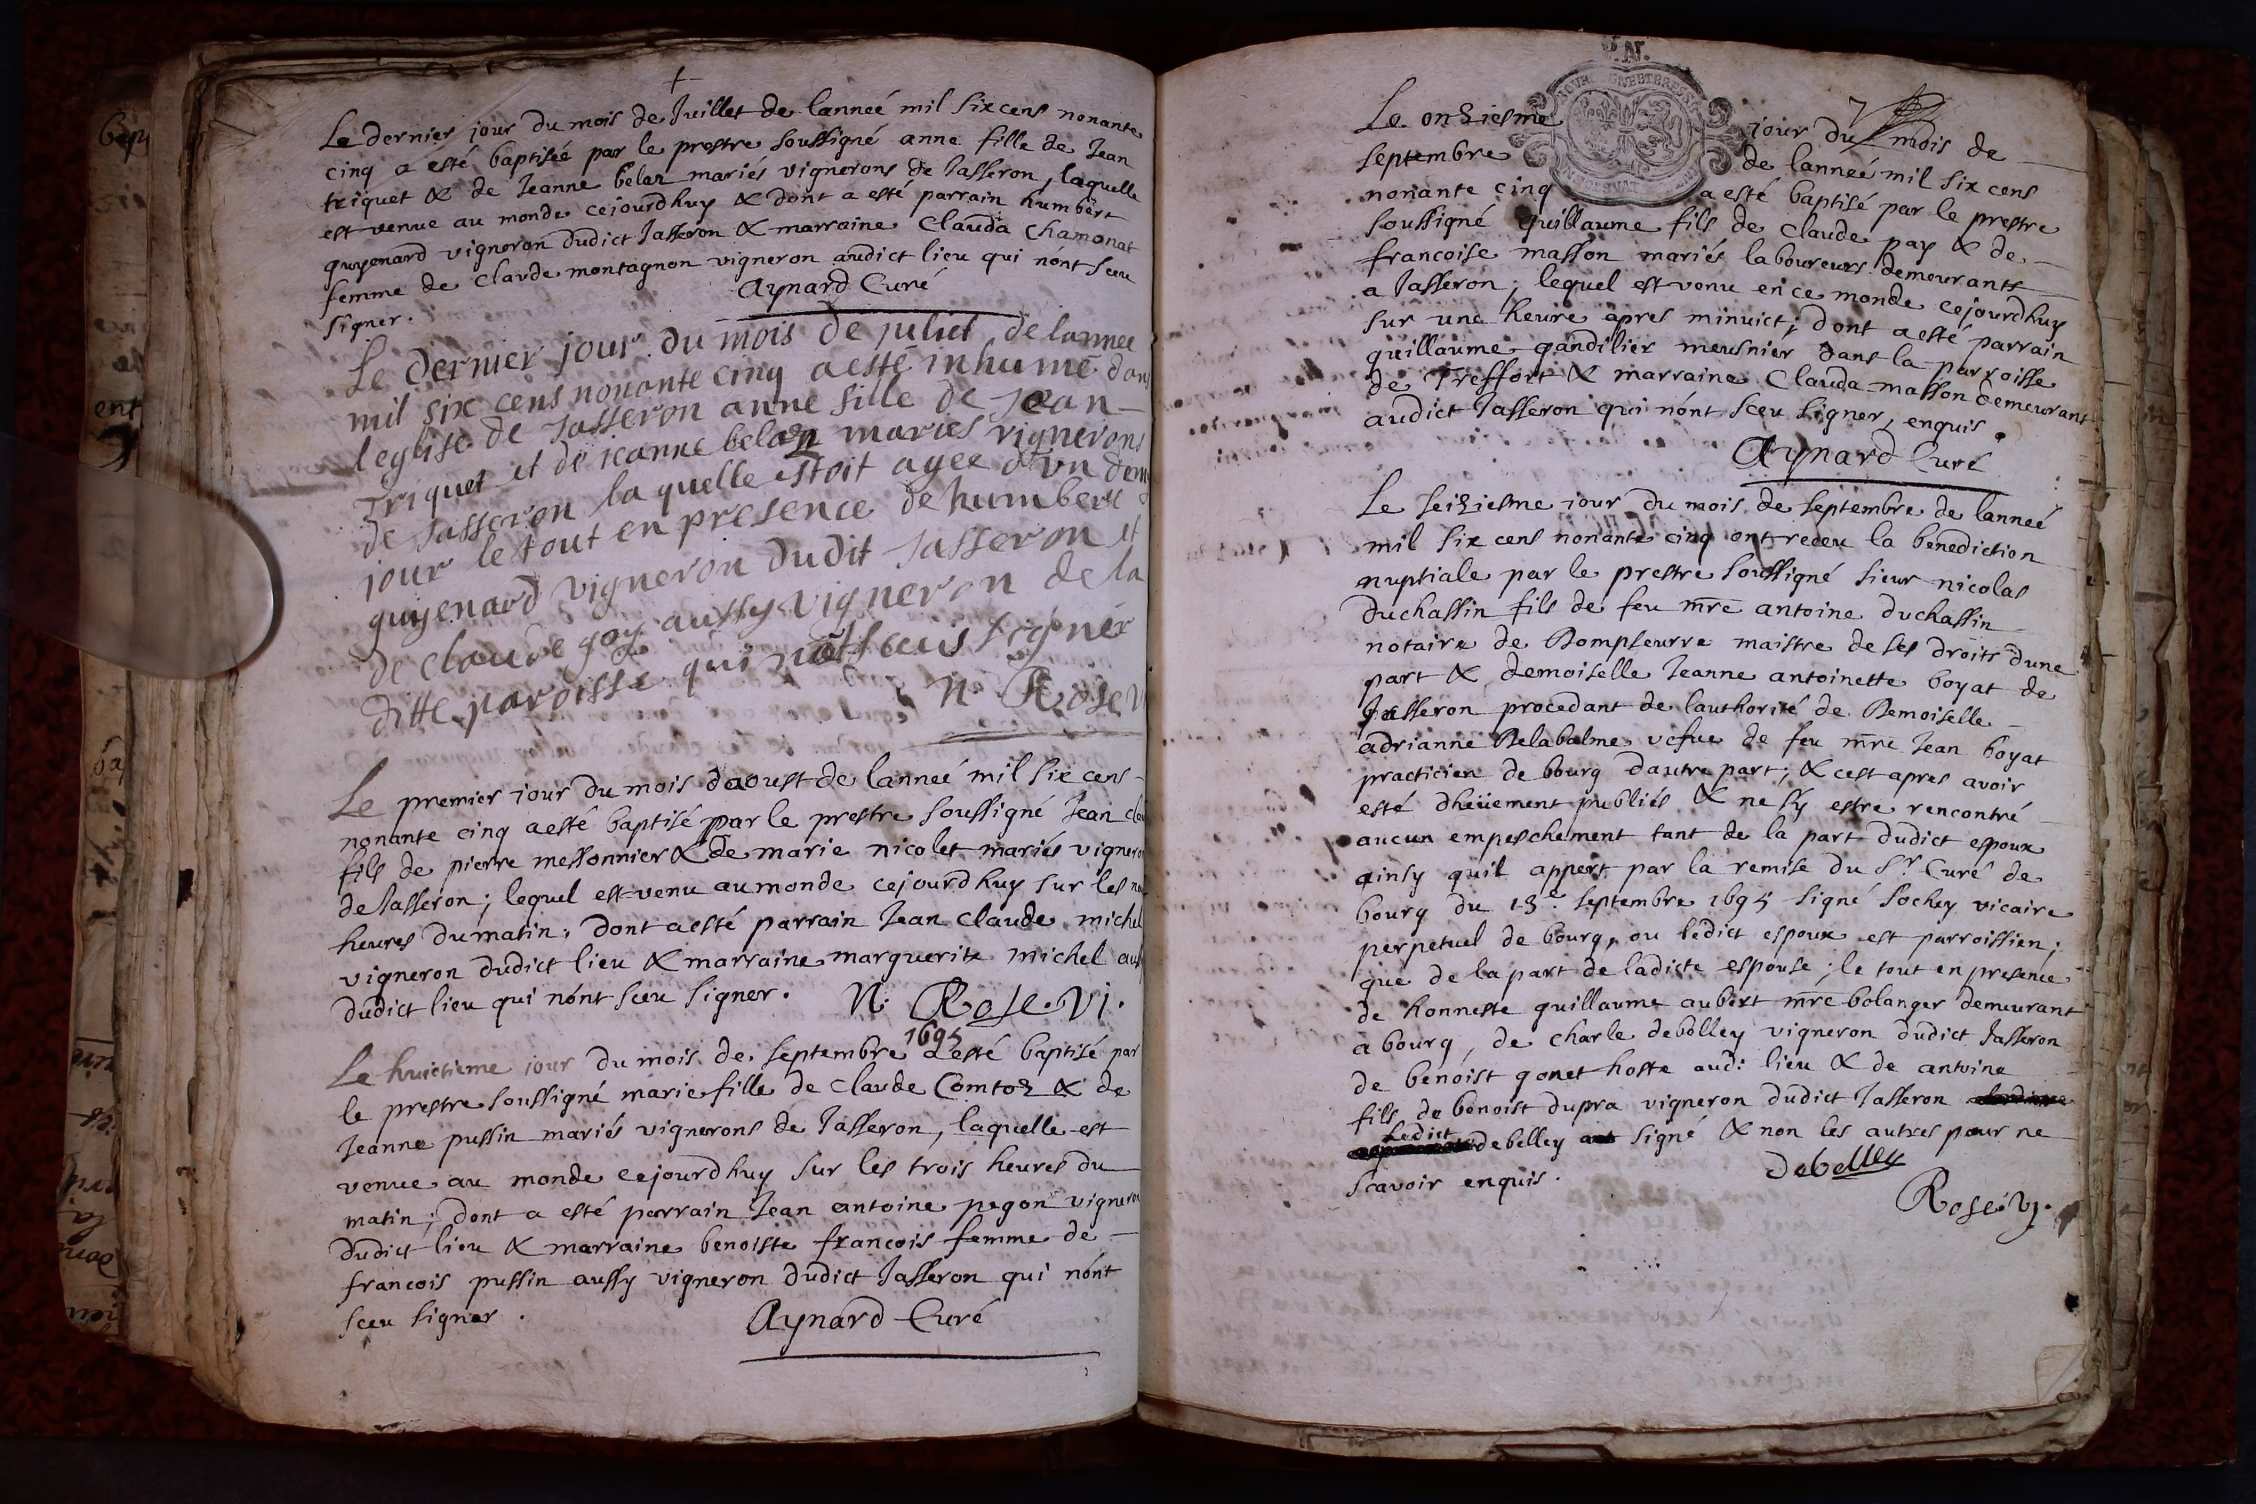 Le dernier jour du mois de Juillet de lanneé mil six cens nonante
cinq a esté baptiseé par le prestre soussigné anne fille de Jean
triquet & de Jeanne belaz mariés vignerons de Jasseron, laquelle
est venue au monde cejourdhuy & dont a esté parrain humbert
guyenard vigneron dudict Jasseron & marraine Clauda Chamonat
femme de Claude montagnon vigneron audict lieu qui nónt sceu
signer.
Aynard Curé
Le dernier jour du mois de juliet de lannee
mil six cens nonante cinq a esté inhumé dans
leglise de Jasseron anne fille de Jean
Triquet et de jeanne belaz mariés vignerons
de Jasseron la quelle estoit agee d'un demy
jour le tout en presence de humbert
guyenard vigneron dudit Jasseron et
de claude goy aussy vigneron de la
ditte paroisse qui nōt sceus signér
N. Rose V
Le premier jour du mois daoust de lanneé mil six cens
nonante cinq a esté baptisé par le prestre soussigné Jean
fils de pierre messonnier & de marie nicolet mariés vigneron
de Jasseron; lequel est venu au monde cejourdhuy sur les
heures du matin, dont a esté parrain Jean Claude michel
vigneron dudict lieu & marraine marguerite michel
dudict lieu qui nónt sceu signer. N. Rose. Vi.
1695
Le huictieme jour du mois de septembre a esté baptisé par
le prestre soussigné marie fille de Claude Comtoz & de
Jeanne pussin mariés vignerons de Jasseron, laquelle est
venue au monde cejourdhuy sur les trois heures du
matin; dont a esté parrain Jean antoine pegon vigneron
dudict lieu & marraine benoiste francois femme de
francois pussin aussy vigneron dudict Jasseron qui nónt
sceu signer.
Aynard Curé
7
Le onziesme jour du mois de
septembre de lanneé mil six cens
nonante cinq a esté baptisé par le prestre
soussigné guillaume fils de Claude pay & de
francoise masson mariés laboureurs demeurants
a Jasseron; lequel est venu en ce monde cejourdhuy
sur une heure apres minuict; dont a esté parrain
guillaume gandilier meusnier dans la parroisse
de Treffort & marraine Clauda masson demeurant
audict Jasseron qui nónt sceu signer, enquis
Aynard Curé
Le seiziesme jour du mois de septembre de lanneé
mil six cens nonante cinq ont receu la benediction
nuptiale par le prestre soussigné sieur nicolas
duchassin fils de feu mre antoine duchassin
notaire de Bompseurre maistre de ses droits dune
part & demoiselle Jeanne antoinette boyat de
Jasseron procedant de lauthorité de Demoiselle
adrianne Delabalme vefue de feu mre Jean boyat
practicien de bourg dautre part; & cest apres avoir
esté dheüement publiés & ne sy estre rencontré
aucun empeschement tant de la part dudict espoux
ainsy quil appert par la remise du Sr. Curé de
bourg du 13e septembre 1695 signé sochey vicaire
perpetuel de bourg, ou ledict espoux est parroissien;
que de la part de ladicte espouse; le tout en presence
de honneste guillaume aubert mre bolanger demeurant
a bourg, de charle debelley vigneron dudict Jasseron
de benoist gonet hoste aud: lieu & de antoine
fils de benoist dupra vigneron dudict Jasseron
Ledict debelley signé & non les autres pour ne
scavoir enquis.
debelley
Rose. Vj.